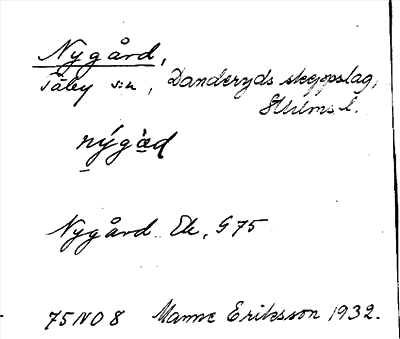 Nygård,
Täby s:n, Danderyds skeppslag,
Sthlms l.
nýgàd
Nygård Ek. G 75
75 NO 8 Manne Eriksson 1932.